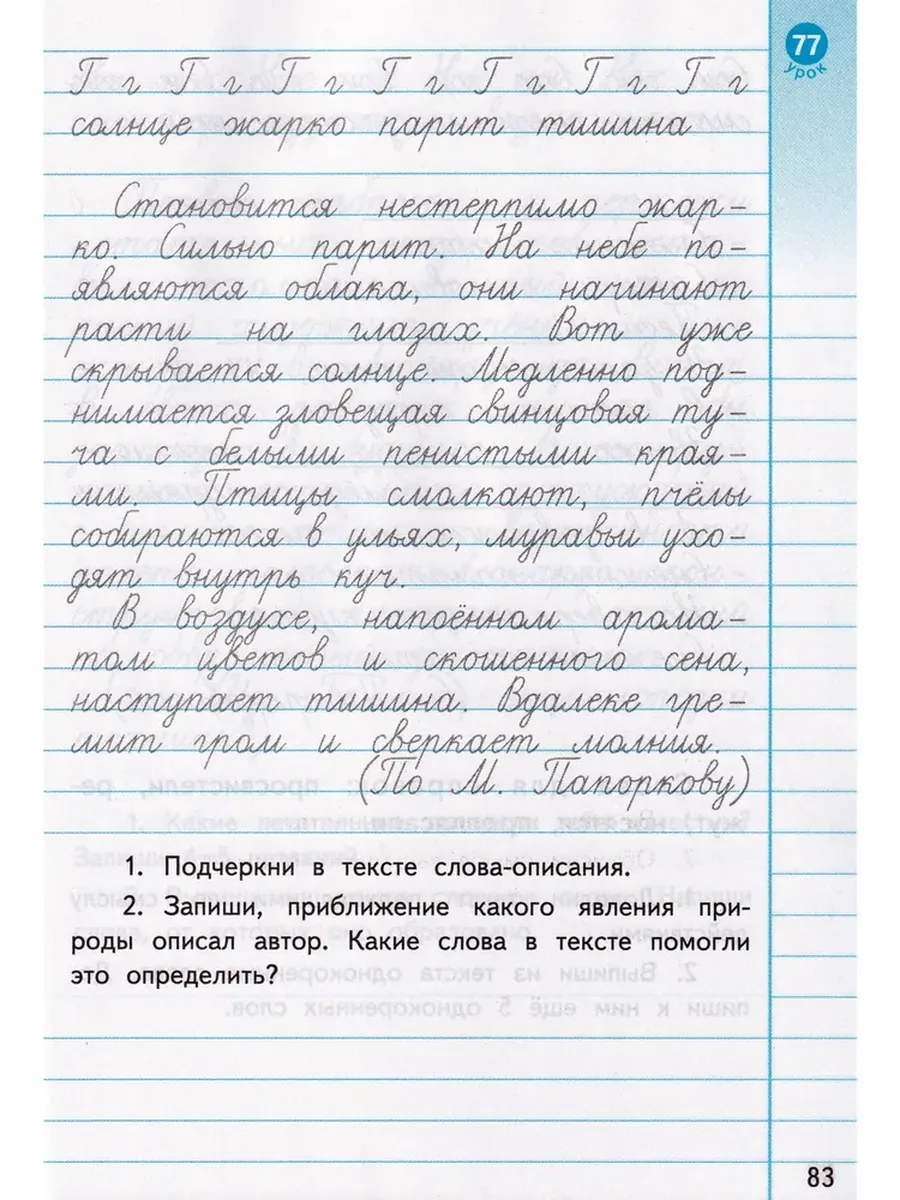 77
урок
Г г Г г Г г Г г Г г Г г Г г
солнце жарко парит тишина
Становится нестерпимо жар-
ко. Сильно парит. На небе по-
являются облака, они начинают
расти на глазах. Вот уже
скрывается солнце. Медленно под-
нимается зловещая свинцовая ту-
ча с белыми пенистыми края-
ми. Птицы смолкают, пчёлы
собираются в ульях, муравьи ухо-
дят внутрь куч.
В воздухе, напоённом арома-
том цветов и скошенного сена,
наступает тишина. Вдалеке гре-
мит гром и сверкает молния.
(По М. Папоркову)
1. Подчеркни в тексте слова-описания.
2. Запиши, приближение какого явления при-
роды описал автор. Какие слова в тексте помогли
это определить?
83